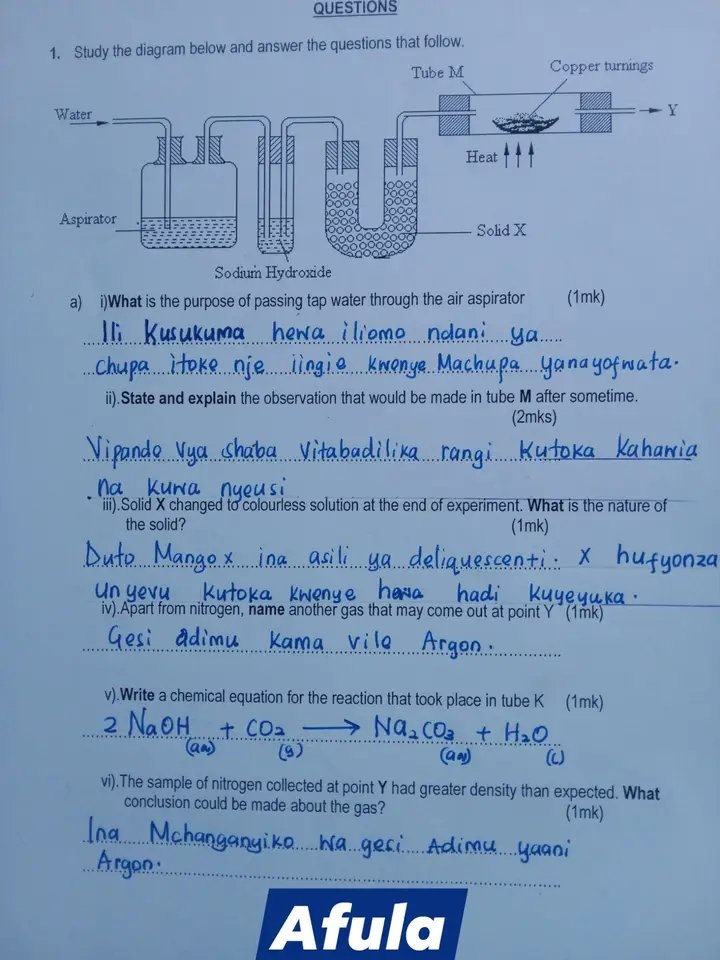 QUESTIONS
1. Study the diagram below and answer the questions that follow.
Tube M
Copper turnings
Water
Y
Heat
Aspirator
Solid X
Sodium Hydroxide
a) i)What is the purpose of passing tap water through the air aspirator (1mk)
Ili Kusukuma hewa iliomo ndani ya
chupa itoke nje iingie kwenye Machupa yanayofwata.
ii).State and explain the observation that would be made in tube M after sometime.
(2mks)
Vipande vya shaba vitabadilika rangi Kutoka Kahawia
na kuwa nyeusi
iii).Solid X changed to colourless solution at the end of experiment. What is the nature of
the solid? (1mk)
Duto Mango x ina asili ya deliquescenti. x hufyonza
unyevu kutoka kwenye hewa hadi kuyeyuka.
iv).Apart from nitrogen, name another gas that may come out at point Y (1mk)
Gesi adimu kama vile Argon.
v).Write a chemical equation for the reaction that took place in tube K (1mk)
2 NaOH(aq) + CO2(g) → Na2CO3(aq) + H2O(L)
vi).The sample of nitrogen collected at point Y had greater density than expected. What
conclusion could be made about the gas? (1mk)
Ina Mchanganyiko wa gesi Adimu yaani
Argon.
Afula